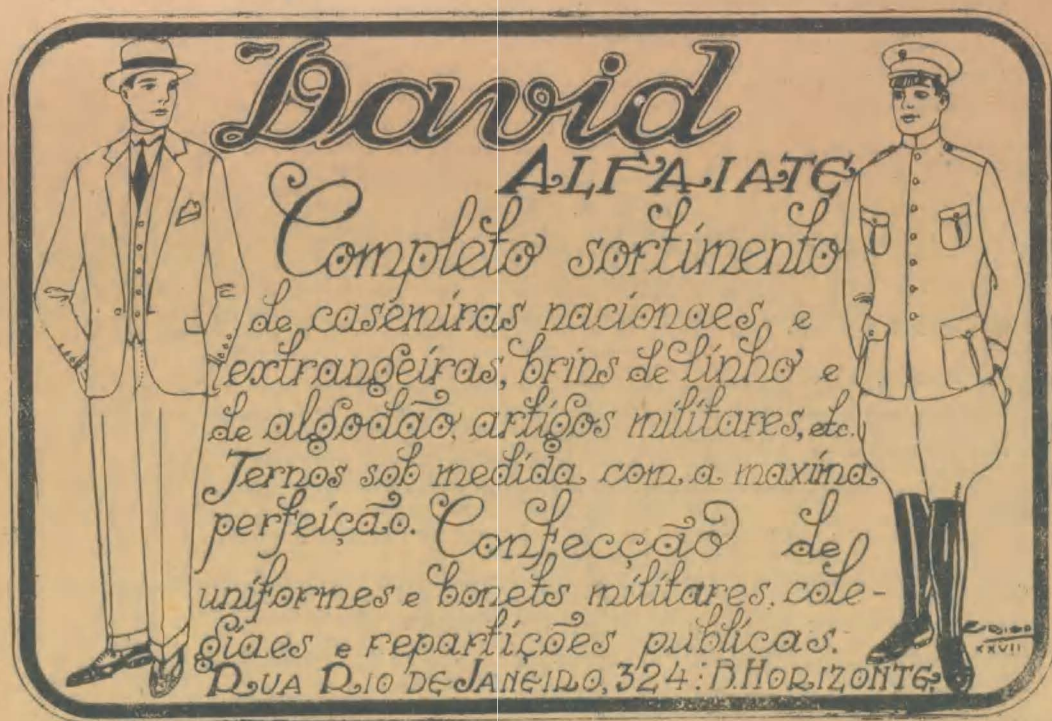 David
ALFAIATE
Completo sortimento
de casemiras nacionaes e
extrangeiras, brins de linho e
de algodão, artigos militares, etc.
Ternos sob medida com a maxima
perfeição. Confecção de
uniformes e bonets militares, cole-
giaes e repartições publicas.
RUA RIO DE JANEIRO, 324: B. HORIZONTE.
XXVII